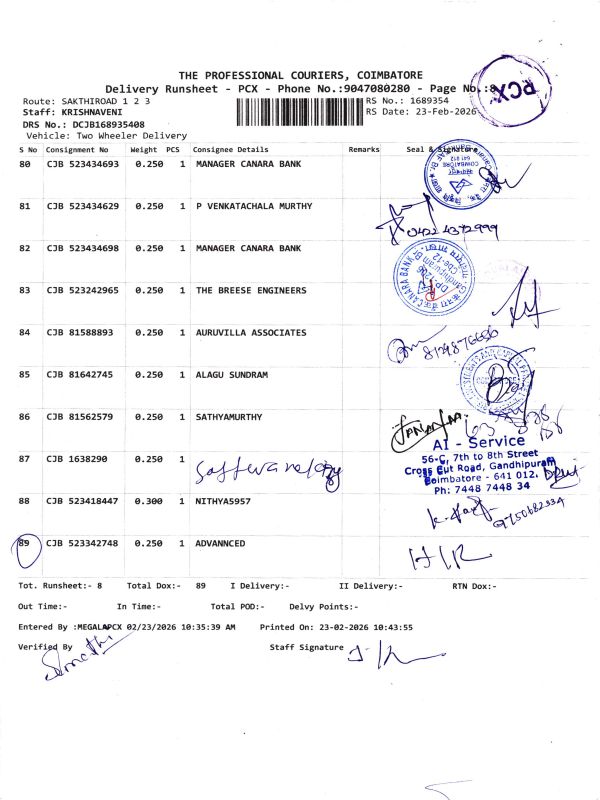 THE PROFESSIONAL COURIERS, COIMBATORE
Delivery Runsheet - PCX - Phone No.:9047080280 - Page No.:8
PCX
Route: SAKTHIROAD 1 2 3
RS No.: 1689354
Staff: KRISHNAVENI
RS Date: 23-Feb-2026
DRS No.: DCJB168935408
Vehicle: Two Wheeler Delivery
S No Consignment No Weight PCS Consignee Details Remarks Seal & Signature
80 CJB 523434693 0.250 1 MANAGER CANARA BANK
81 CJB 523434629 0.250 1 P VENKATACHALA MURTHY
0422 4372999
82 CJB 523434698 0.250 1 MANAGER CANARA BANK
CANARA BANK
Gandhipuram Br.
Cbe-12
83 CJB 523242965 0.250 1 THE BREESE ENGINEERS
84 CJB 81588893 0.250 1 AURUVILLA ASSOCIATES
85 CJB 81642745 0.250 1 ALAGU SUNDRAM
86 CJB 81562579 0.250 1 SATHYAMURTHY
AI - Service
56-C, 7th to 8th Street
Cross Cut Road, Gandhipuram
Coimbatore - 641 012.
Ph: 7448 7448 34
87 CJB 1638290 0.250 1
88 CJB 523418447 0.300 1 NITHYA5957
9750682334
89 CJB 523342748 0.250 1 ADVANNCED
Tot. Runsheet:- 8 Total Dox:- 89 I Delivery:- II Delivery:- RTN Dox:-
Out Time:- In Time:- Total POD:- Delvy Points:-
Entered By :MEGALAPCX 02/23/2026 10:35:39 AM Printed On: 23-02-2026 10:43:55
Verified By Staff Signature